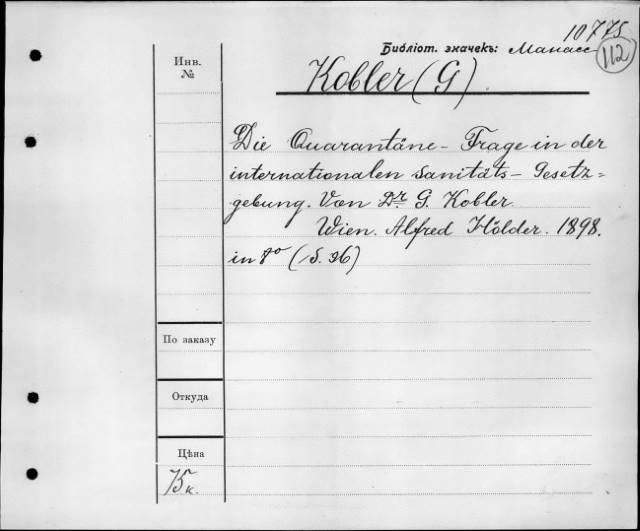 10775
Библіот. значекъ: Манасс
112
Инв.
№
Kobler (G)
Die Quarantäne - Frage in der
internationalen Sanitäts - Gesetz=
gebung. Von Dr G. Kobler.
Wien. Alfred Hölder. 1898.
in 8° (S. 36)
По заказу
Откуда
Цѣна
75 к.